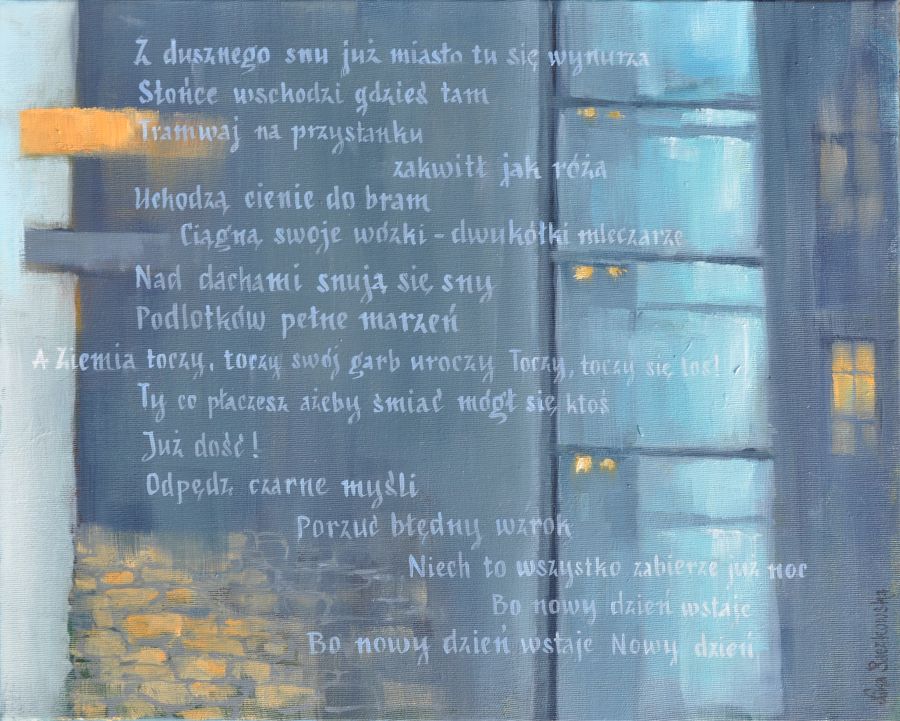 Z dusznego snu już miasto tu się wynurza
Słońce wschodzi gdzieś tam
Tramwaj na przystanku
zakwitł jak róża
Uchodzą cienie do bram
Ciągną swoje wózki - dwukółki mleczarze
Nad dachami snują się sny
Podlotków pełne marzeń
A Ziemia toczy, toczy swój garb uroczy Toczy, toczy się los!
Ty co płaczesz ażeby śmiać mógł się ktoś
Już dość!
Odpędź czarne myśli
Porzuć błędny wzrok
Niech to wszystko zabierze już noc
Bo nowy dzień wstaje
Bo nowy dzień wstaje Nowy dzień